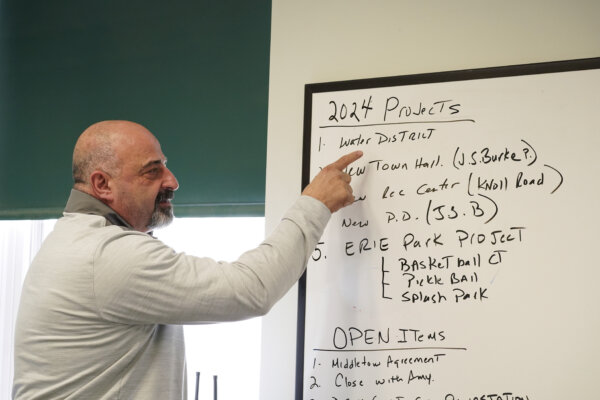 2024 Projects
1. Water District
New Town Hall. (J.S. Burke?)
Rec Center (Knoll Road)
New P.D. (J.S.B)
5. ERIE Park Project
Basketball CT
Pickle Ball
Splash Park
OPEN Items
1. Middletown Agreement
2. Close with Amy.